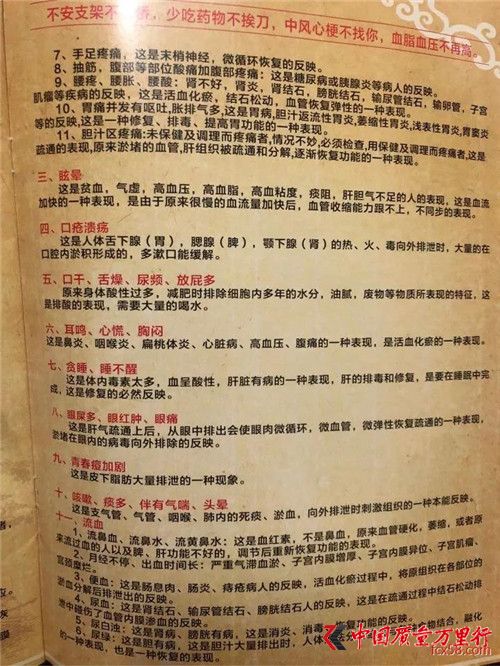 不安支架不搭桥，少吃药物不挨刀，中风心梗不找你，血脂血压不再高。
7、手足疼痛，这是末梢神经，微循环恢复的反映。
8、抽筋，腹部等部位酸痛加腹部疼痛：这是糖尿病或胰腺炎等病人的反映。
9、腰疼、腰胀、腰酸：肾不好，肾炎，肾结石、膀胱结石，输尿管结石、输卵管，子宫
肌瘤等疾病的反映，这是活血化瘀，结石松动，血管恢复弹性的一种表现。
10、胃痛并发有呕吐，胀排气多，这是胃病，胆汁返流性胃炎，萎缩性胃炎，浅表性胃炎，胃窦炎
等的反映，这是一种修复、排毒、提高胃功能的一种表现。
11、胆汁区疼痛：未保健及调理而疼痛者，情况不妙，必须检查，用保健及调理而疼痛者，这是
疏通的表现，原来淤堵的血管，肝组织被疏通和分解，逐渐恢复功能的一种表现。
三、眩晕
这是贫血，气虚，高血压，高血脂，高血粘度，痰阻，肝胆气不足的人的表现，这是血流
加快的一种表现，是由于原来很慢的血流量加快后，血管收缩能力跟不上，不同步的表现。
四、口疮溃疡
这是人体舌下腺（胃），腮腺（脾），颚下腺（肾）的热、火、毒向外排泄时，大量的在
口腔内淤积形成的，多漱口能缓解。
五、口干、舌燥、尿频、放屁多
原来身体酸性过多，减肥时排除细胞内多年的水分，油腻，废物等物质所表现的特征，这
是排酸的表现，需要大量的喝水。
六、耳鸣、心慌、胸闷
这是鼻炎、咽喉炎、扁桃体炎、心脏病、高血压、腹痛的一种表现，是活血化瘀的一种表现。
七、贪睡、睡不醒
这是体内毒素太多，血呈酸性，肝脏有病的一种表现，肝的排毒和修复，是要在睡眠中完
成，这是修复的必然反映。
八、眼屎多、眼红肿、眼痛
这是肝气疏通上后，从眼中排出会使眼肉微循环，微血管，微弹性恢复疏通的一种表现，
淤堵在眼内的病毒向外排除的反映。
九、青春痘加剧
这是皮下脂肪大量排泄的一种现象。
十、咳嗽、痰多、伴有气喘、头晕
这是支气管、气管、咽喉、肺内的死痰、淤血，向外排泄时刺激组织的一种本能反映。
十一、流血
1、流鼻血、流鼻水、流黄鼻水：这是血红素，不是鼻血，原来血管硬化，萎缩，或者原
来流过血的人以及脾、肝功能不好的，调节后重新恢复功能的表现。
2、月经不停、出血时间长：严重气滞血淤、子宫内膜增厚、子宫内膜异位、子宫肌瘤、
宫颈糜烂。
3、便血：这是肠息肉、肠炎、痔疮病人的反映，活血化瘀过程中，将原组织在各部位的
淤血分解后排泄出的反映。
4、尿血：这是肾结石、输尿管结石、膀胱结石人的反映，这是在疏通过程中结石松动排
泄中碰伤了血管内膜渗血的反映。
5、尿白浊：这是肾病、膀胱有病，这是消炎、消毒
6、尿绿：这是胆有病，这是胆汁大量排出时，融化
的一种表现，也是一种恢复
中国质量万里行
fcx58.com